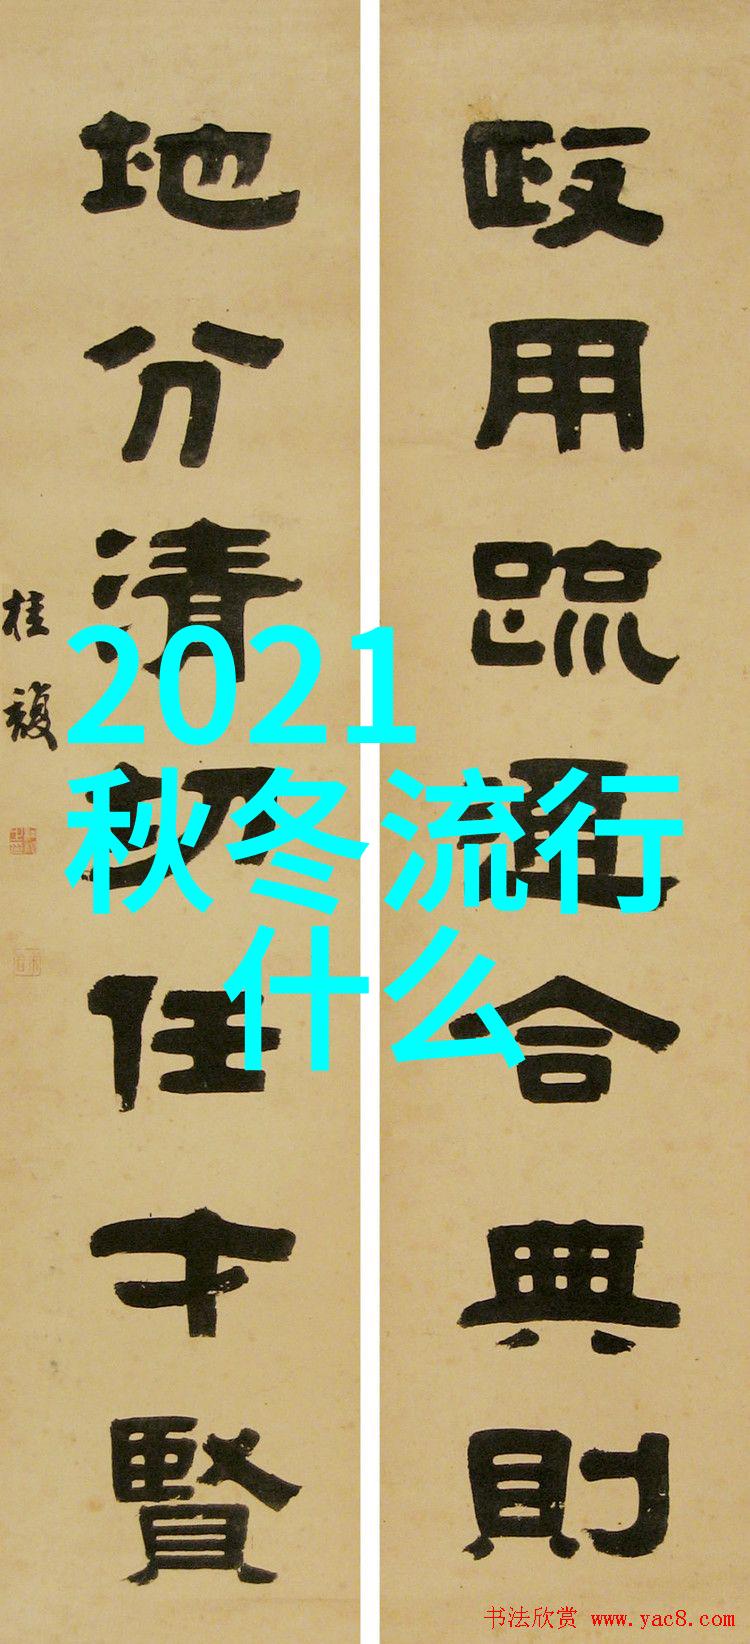 政用疏通合典則
地分清切任才賢
桂馥
2021
秋冬流行
什么
书法欣赏 www.yac8.com